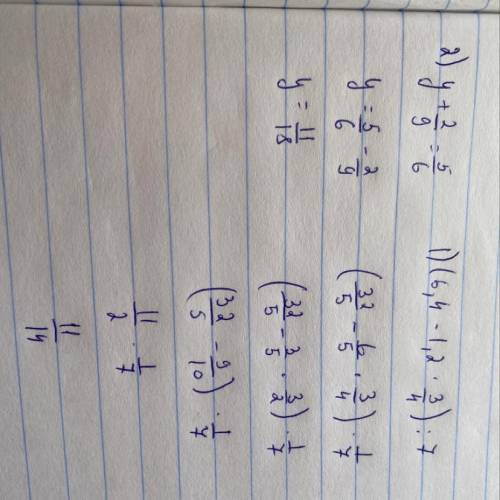 2) y + 2/9 = 5/6
y = 5/6 - 2/9
y = 11/18
1) (6,4 - 1,2 · 3/4) : 7
(32/5 - 6/5 · 3/4) · 1/7
(32/5 - 3/5 · 3/2) · 1/7
(32/5 - 9/10) · 1/7
11/2 · 1/7
11/14